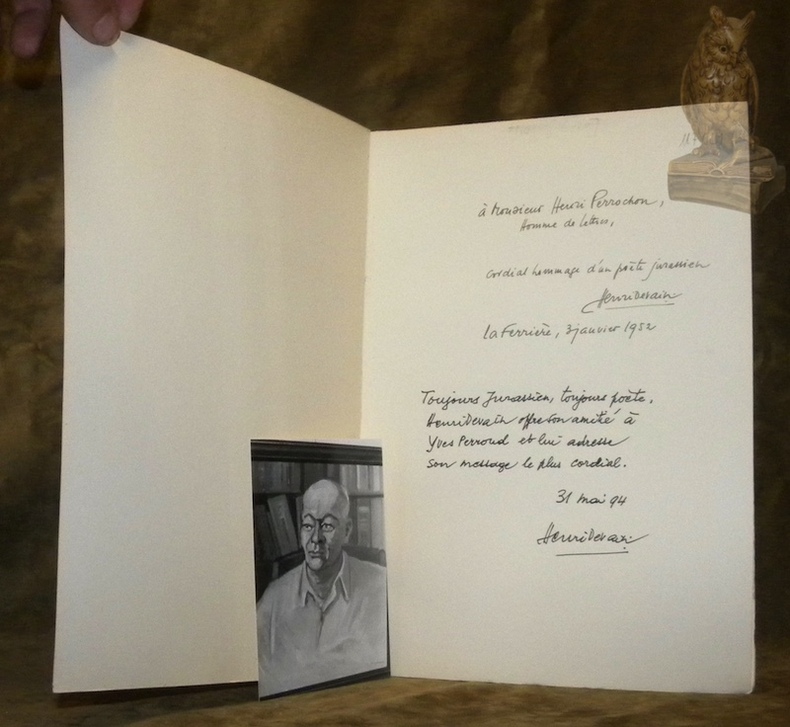 à Monsieur Henri Perrochon,
Homme de lettres,
cordial hommage d'un poète jurassien
Henri Devain
la Ferrière, 3 janvier 1952
Toujours Jurassien, toujours poète,
Henri Devain offre son amitié à
Yves Perroud et lui adresse
son message le plus cordial.
31 mai 94
Henri Devain